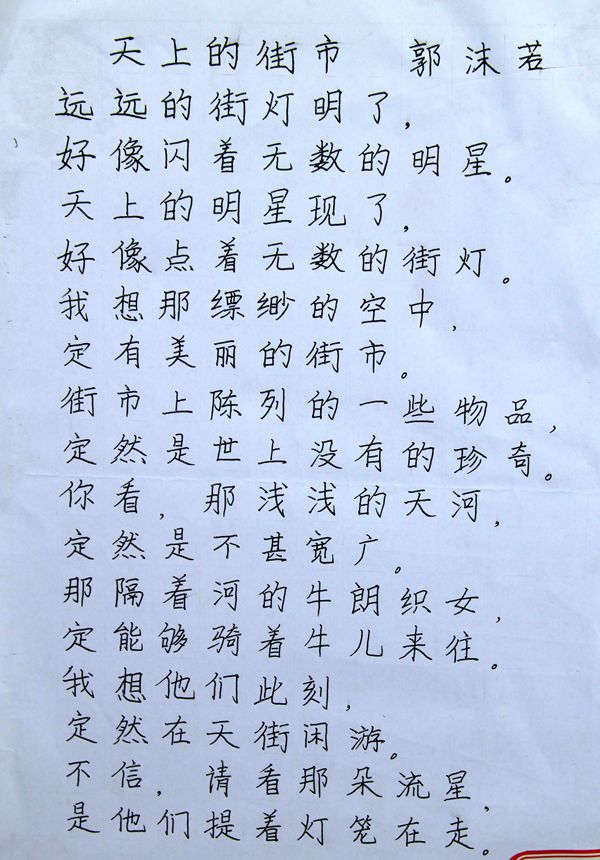 天上的街市 郭沫若
远远的街灯明了，
好像闪着无数的明星。
天上的明星现了，
好像点着无数的街灯。
我想那缥缈的空中，
定有美丽的街市。
街市上陈列的一些物品，
定然是世上没有的珍奇。
你看，那浅浅的天河，
定然是不甚宽广。
那隔着河的牛朗织女，
定能够骑着牛儿来往。
我想他们此刻，
定然在天街闲游。
不信，请看那朵流星，
是他们提着灯笼在走。